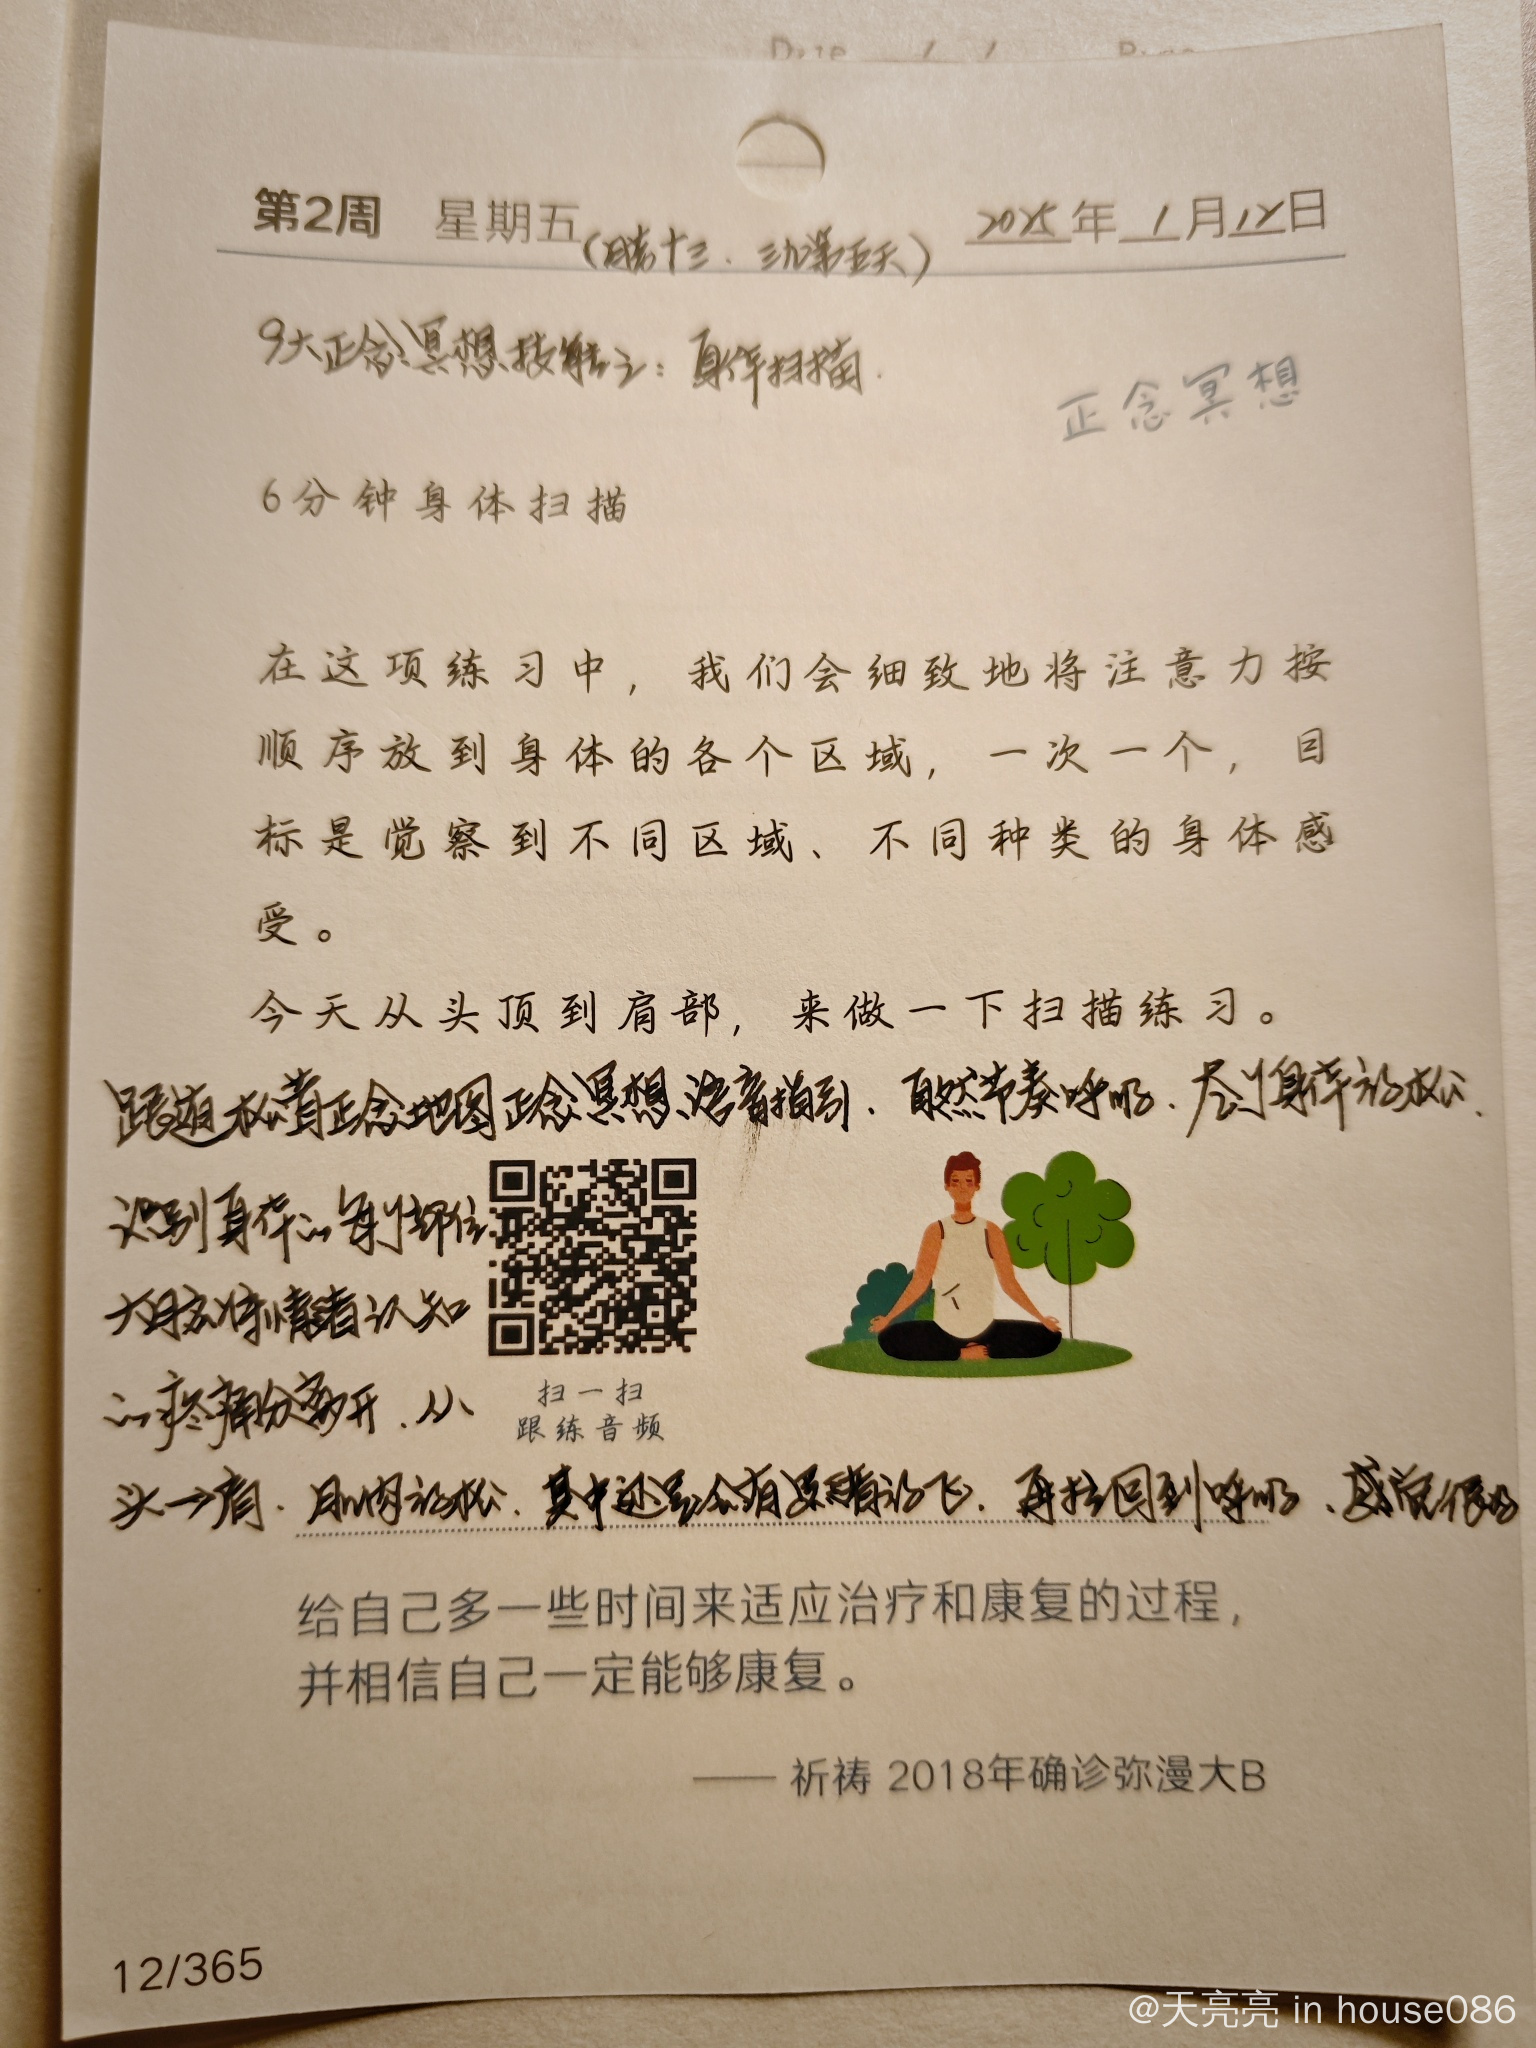 第2周 星期五(腊十三、三九第五天) 2025年1月12日
9大正念冥想技能之：身体扫描.
正念冥想
6分钟身体扫描
在这项练习中，我们会细致地将注意力按
顺序放到身体的各个区域，一次一个，目
标是觉察到不同区域、不同种类的身体感
受。
今天从头顶到肩部，来做一下扫描练习。
正念地图正念冥想语音指引、自然节奏呼吸、身体放松、
识别身体部位
情绪认知
分离开、从
头→肩、肌肉放松、其中还是会有思绪纷飞、再拉回到呼吸、感觉很好
扫一扫
跟练音频
给自己多一些时间来适应治疗和康复的过程，
并相信自己一定能够康复。
—— 祈祷 2018年确诊弥漫大B
12/365
@天亮亮 in house086